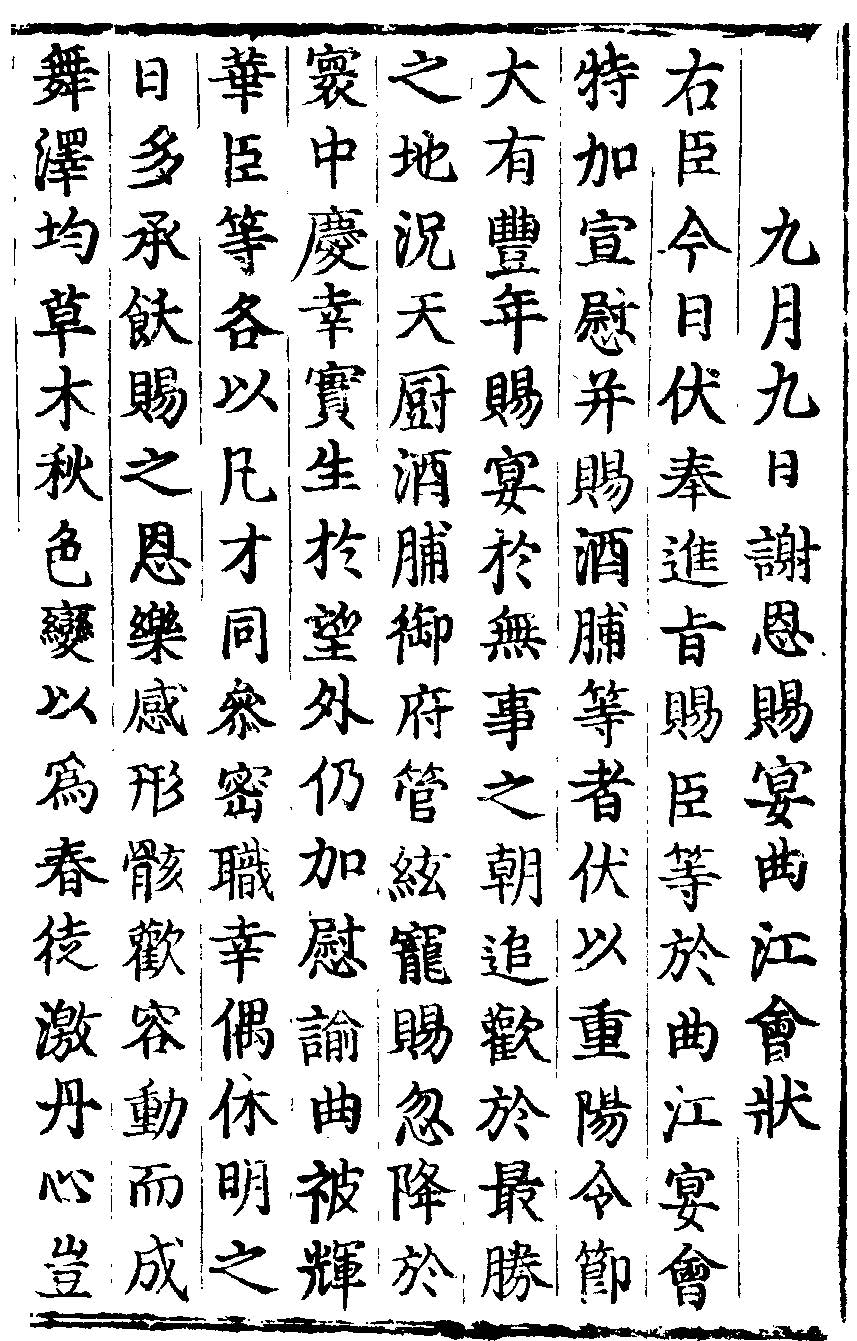 九月九日謝恩賜宴曲江會狀
右臣今日伏奉進旨賜臣等於曲江宴會
特加宣慰并賜酒脯等者伏以重陽令節
大有豐年賜宴於無事之朝追歡於最勝
之地況天厨酒脯御府管絃寵賜忽降於
寰中慶幸實生於望外仍加慰諭曲被輝
華臣等各以凡才同叅密職幸偶休明之
日多承飫賜之恩樂感形骸歡容動而成
舞澤均草木秋色變以為春徒激丹心豈